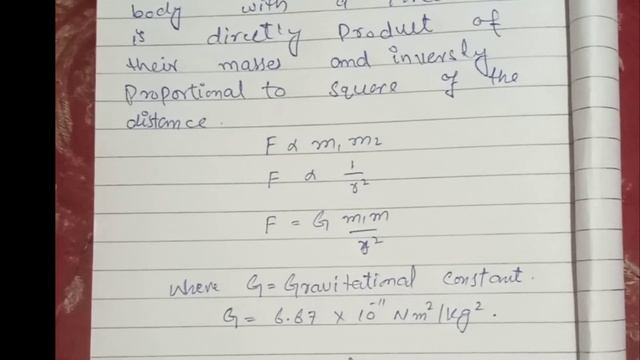 body with a
is dircetly Product of
their masses and inversly
Proportional to square of the
distance.
F ∝ m1 m2
F ∝ 1/r²
F = G m1m/r²
Where G = Gravitational Constant.
G = 6.67 × 10⁻¹¹ Nm²/kg².